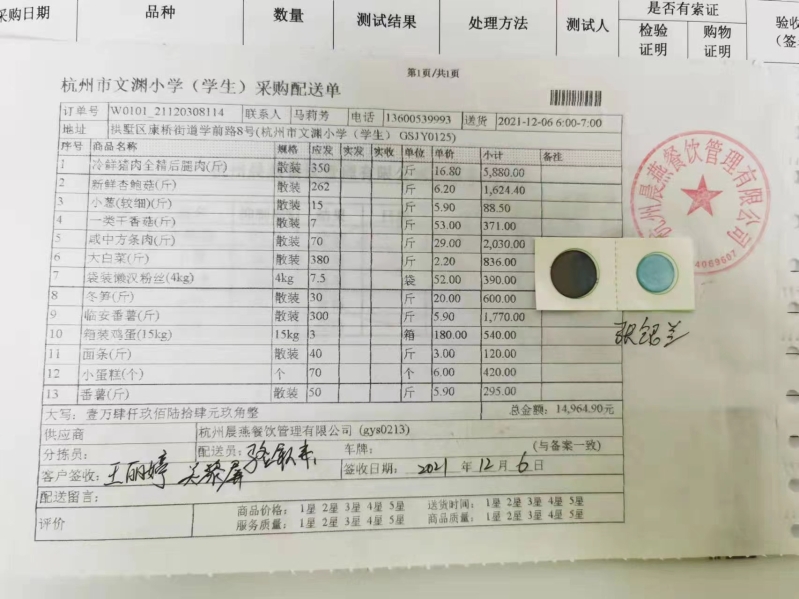 采购日期 品种 数量 测试结果 处理方法 测试人 是否有索证
检验证明 购物证明
第1页/共1页
杭州市文渊小学（学生）采购配送单
订单号 W0101_21120308114 联系人 马莉芳 电话 13600539993 送货 2021-12-06 6:00-7:00
地址 拱墅区康桥街道学前路8号(杭州市文渊小学（学生） GSJY0125)
序号 商品名称 规格 应发 实发 实收 单位 单价 小计 备注
1 冷鲜猪肉全精后腿肉(斤) 散装 350 斤 16.80 5,880.00
2 新鲜杏鲍菇(斤) 散装 262 斤 6.20 1,624.40
3 小葱(较细)(斤) 散装 15 斤 5.90 88.50
4 一类干香菇(斤) 散装 7 斤 53.00 371.00
5 咸中方条肉(斤) 散装 70 斤 29.00 2,030.00
6 大白菜(斤) 散装 380 斤 2.20 836.00
7 袋装懒汉粉丝(4kg) 4kg 7.5 袋 52.00 390.00
8 冬笋(斤) 散装 30 斤 20.00 600.00
9 临安番薯(斤) 散装 300 斤 5.90 1,770.00
10 箱装鸡蛋(15kg) 15kg 3 箱 180.00 540.00
11 面条(斤) 散装 40 斤 3.00 120.00
12 小蛋糕(个) 个 70 个 6.00 420.00
13 番薯(斤) 散装 50 斤 5.90 295.00
大写: 壹万肆仟玖佰陆拾肆元玖角整 总金额: 14,964.90元
供应商 杭州晨燕餐饮管理有限公司 (gys0213)
分拣员: 配送员: 车牌: (与备案一致)
客户签收: 王丽婷 签收日期: 2021 年 12 月 6 日
配送留言:
评价 商品价格: 1星 2星 3星 4星 5星 送货时间: 1星 2星 3星 4星 5星
服务质量: 1星 2星 3星 4星 5星 商品质量: 1星 2星 3星 4星 5星
杭州晨燕餐饮管理有限公司